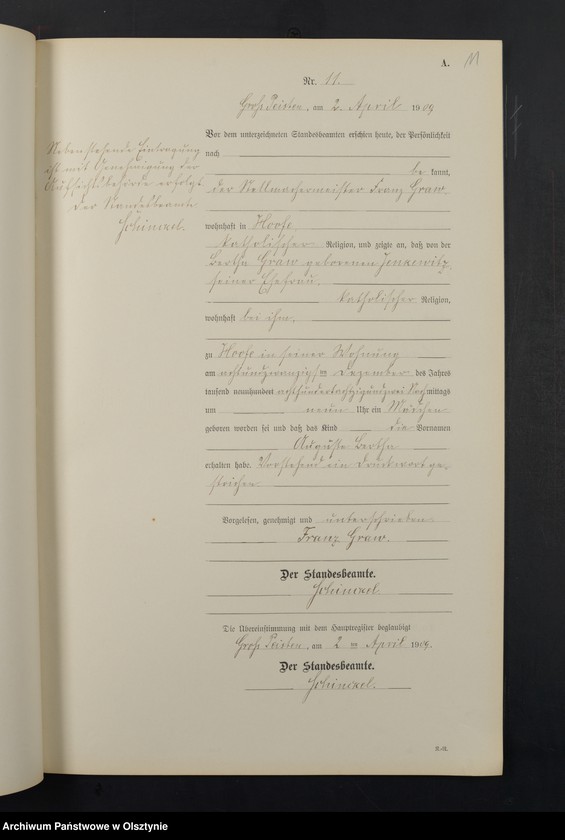 A.
11
Nr. 11.
Groß Peisten, am 2. April 1909
Vor dem unterzeichneten Standesbeamten erschien heute, der Persönlichkeit
nach
be kannt,
der Stellmachermeister Franz Graw
wohnhaft in Hoofe
katholischer Religion, und zeigte an, daß von der
Bertha Graw geborenen Jenkewitz,
seiner Ehefrau,
katholischer Religion,
wohnhaft bei ihm,
zu Hoofe in seiner Wohnung
am achtundzwanzigsten Dezember des Jahres
tausend neunhundert achthundertachtzigundzwei Nachmittags
um neun Uhr ein Mädchen
geboren worden sei und daß das Kind die Vornamen
Auguste Bertha
erhalten habe. Vorstehend ein Druckwort ge-
strichen
Vorgelesen, genehmigt und unterschrieben
Franz Graw.
Der Standesbeamte.
Schinckel
Die Übereinstimmung mit dem Hauptregister beglaubigt
Groß Peisten, am 2 ten April 1909.
Der Standesbeamte.
Schinckel.
Nebenstehende Eintragung
ist mit Genehmigung der
Aufsichtsbehörde erfolgt
Der Standesbeamte
Schinckel.
Archiwum Państwowe w Olsztynie